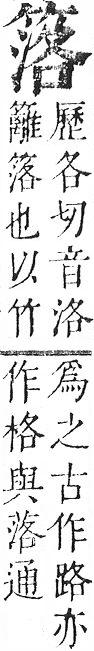 歷各切音洛
籬也以竹
爲之古作路亦
作格與落通